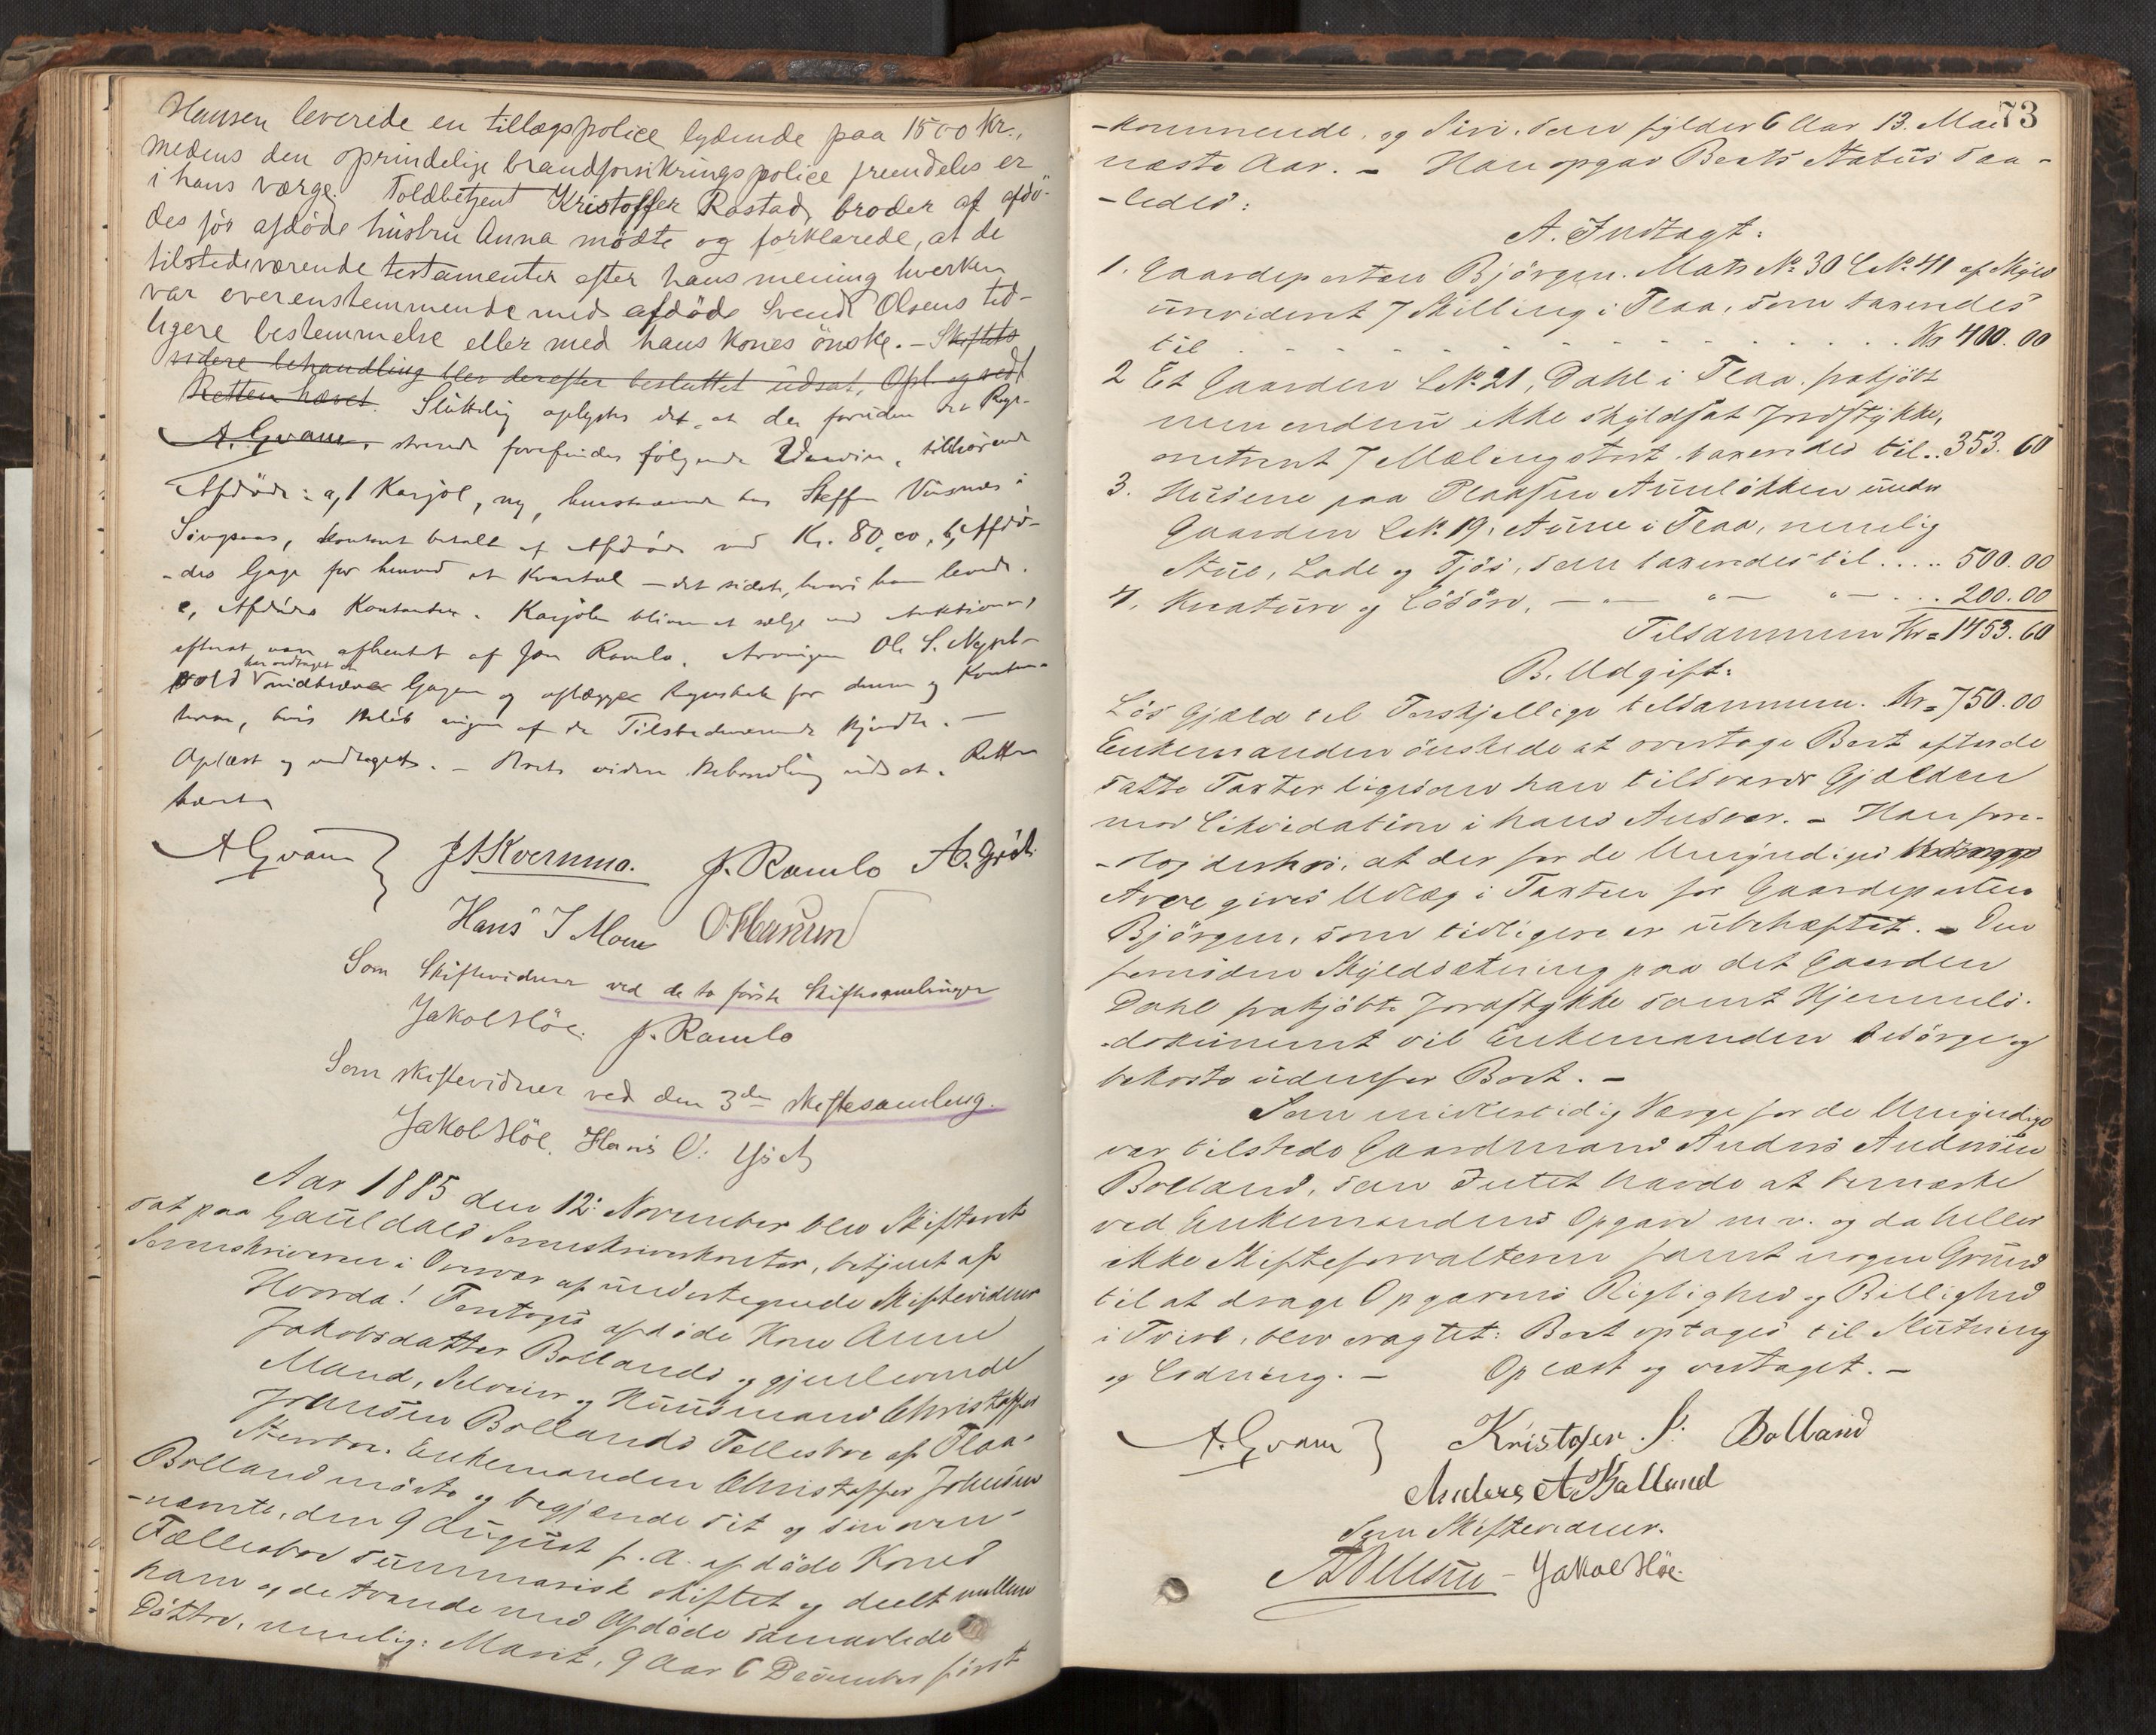 Hansen leverede en tillægspolice lydende paa 1500 Kr.,
medens den oprindelige brandforsikringspolice fremdeles er
i hans værge. Toldbetjent Kristoffer Rostad, broder af afdö-
des för afdöde hustru Anna mödte og forklarede, at de
tilstedeværende testamenter efter hans mening hverken
var overenstemmende med afdöde Svend Olsens tid-
ligere bestemmelse eller med hans kones önske. – Skiftets
videre behandling blev derefter besluttet udsat, Opl. og vedt
Retten hævet. Sluttelig oplystes det, at der foruden det Regi-
A. Qvam. strerede forefindes følgende Værdier, tilhörende
Afdöde: a, 1 Karjol, ny, henstaaende hos Steffen Vinsnes i
Singsaas, kontant betalt af Afdöde med Kr. 80,00, b, Afdö-
-des Gage for henved et Kvartal – det sidste, hvori han levede.
c, Afdödes Kontanter. Karjolen bliver at sælge ved Auktionen,
efterat være afhentet af Jon Ramlo. Arvingen Ole S. Nypl-
vold har vedtaget at indkræve Gagen og aflægge Regnskab for denne og Kontan-
terne, hvis Belöb ingen af de Tilstedeværende kjendte. –
Oplæst og vedtaget. – Boets videre Behandling udsat. Retten
hævet.
A Qvam } J A Kvernmo. J. Ramlo A. Gröt
Hans J Moe O. Hansen
Som Skiftevidner ved de to förste Skiftesamlinger
Jakob Höe. J. Ramlo
Som skiftevidner ved den 3die skiftesamling.
Jakob Höe. Hans O:
Aar 1885 den 12: November blev Skifteret
sat paa Gauldals Sorenskriverkontor, betjent af
Sorenskriveren i Overvær af undertegnede Skiftevidner
Hvorda! Foretoges afdöde Kone Anne
Jakobsdatter Bollands og gjenlevende
Mand, Selveier og Huusmand Christoffer
Johnsen Bollands Fellesbo af Flaa
Stervbo. Enkemanden Christoffer Johnsen
Bolland mödte og begjærede sit og sin oven-
-nævnte, den 9 August f. A. afdöde Kones
Fællesbo summarisk skiftet og deelt mellem
ham og de tvende med Afdöde samavlede
Döttre, nemlig: Marit, 9 Aar 6 December först
73
-kommende, og Siri, som fylder 6 Aar 13. Mai
næste Aar. – Han opgav Boets Status saa-
-ledes:
A. Indtægt:
1. Gaardeparten Björgen. Mats №. 30 L№. 41 af Skyld
urevideret 7 Skilling i Flaa, som taxeredes
til . . . . . . . . . . Kr 400.00
2 Et Gaarden L№. 21, Dahl i Flaa frakjöbt
men endnu ikke skyldsat Jordstykke,
omtrent 7 Mæling stort taxeredes til .. 353.60
3. Husene paa Pladsen Aunelökken under
Gaarden L№. 19, Aune i Flaa, nemlig
Stue, Lade og Fjös, som taxeredes til .... 500.00
4. Kreature og Lösöre, – " – " – " – ... 200.00
Tilsammen Kr = 1453.60
B. Udgift:
Lös Gjæld til Forskjellige tilsammen. Kr = 750.00
Enkemanden önskede at overtage Boet efter de
satte Taxter ligesom han tilsvarer Gjælden
mod Likvidation i hans Andeel. – Han fore-
-slog derhos, at der for de Umyndiges
Arve gives Udlæg i Taxten for Gaardeparten
Björgen, som tidligere er ubehæftet. – Den
fornödne Skyldsætning paa det Gaarden
Dahl frakjöbte Jordstykke samt Hjemmels-
-dokument vil Enkemanden besörge og
bekoste udenfor Boet. –
Som midlertidig Værge for de Umyndige
var tilstede Gaardmand Anders Andersen
Bolland, som Intet havde at bemærke
ved Enkemandens Opgave m. v. og da heller
ikke Skifteforvalteren fandt nogen Grund
til at drage Opgavens Rigtighed og Billighed
i Tvivl, blev eragtet: Boet optages til Slutning
og Lodning. – Oplæst og vedtaget. –
A. Qvam } Kristofer J: Bolland
Anders A Balland
Som Skiftevidner.
Jakob Höe.